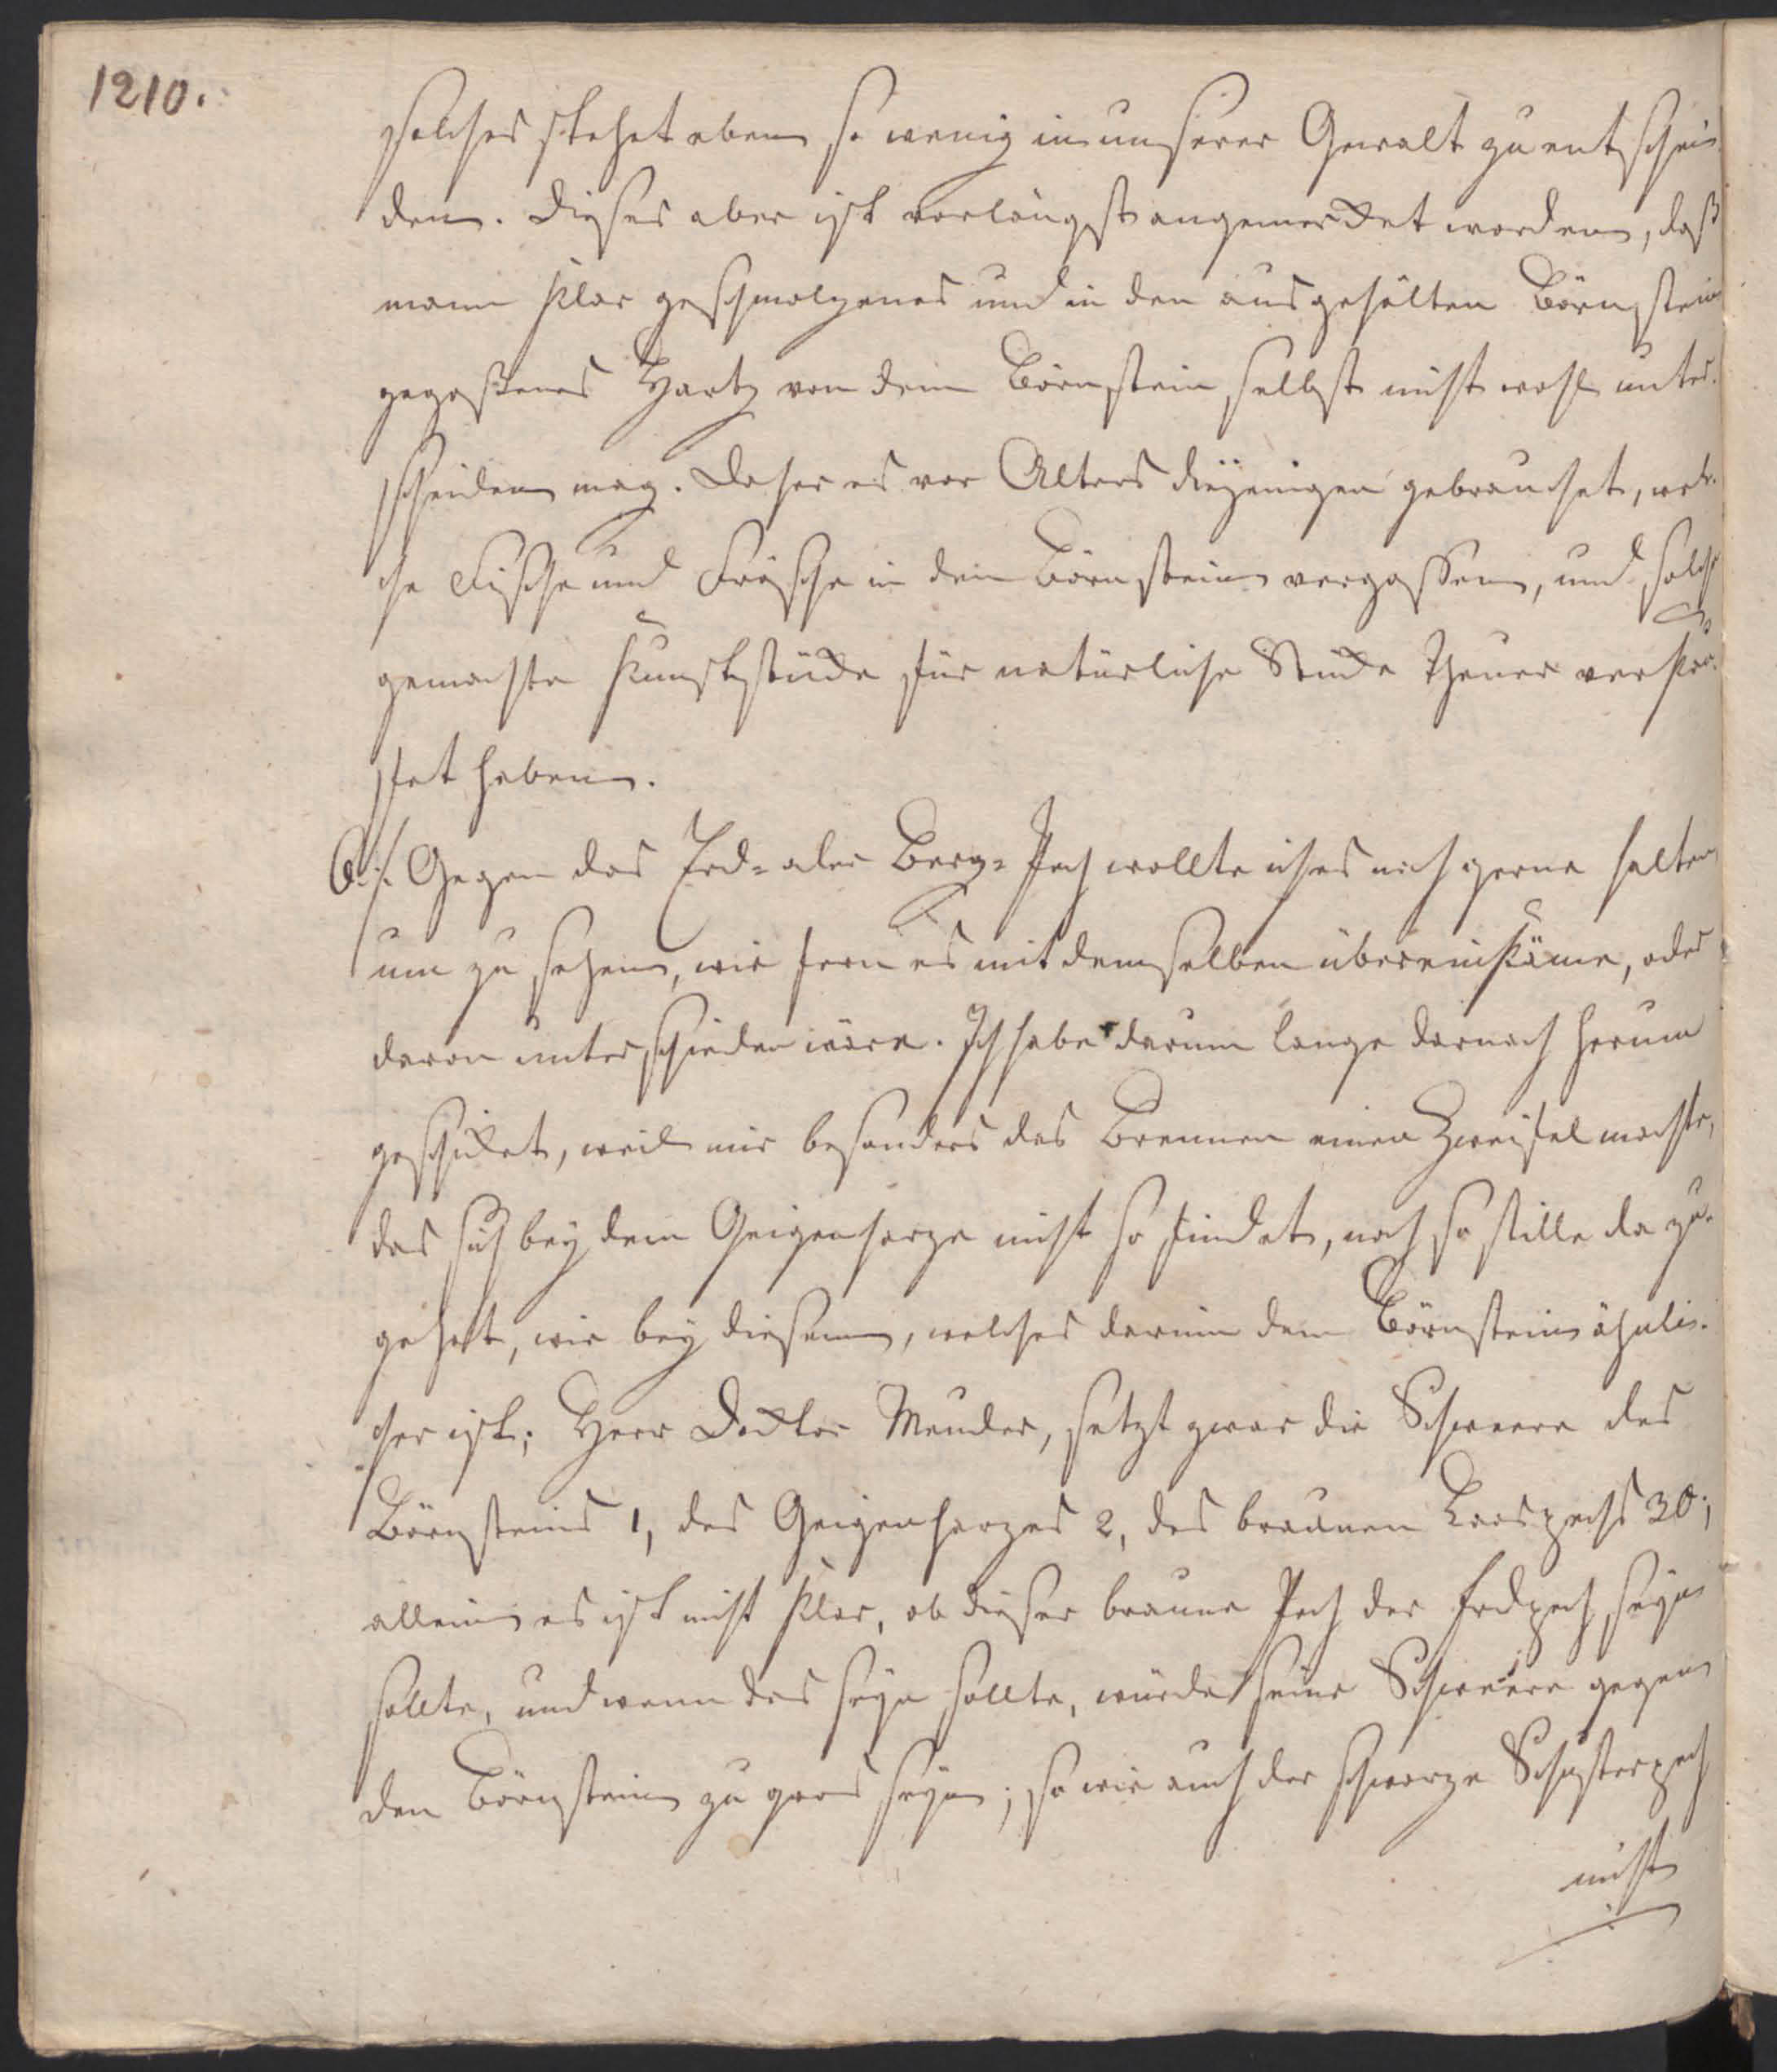 1210.
solches stehet eben so wenig in unserer Gewalt zu entschei-
den. Dieses aber ist vorlängst angemercket worden, daß
mann klar geschmolzenes und in den ausgehölten Börnstein
gegoßenes Hartz von dem Börnstein selbst nicht wohl unter-
scheiden mag. Daher es vor Alters diejenigen gebrauchet, wel-
che Fische und Frösche in dem Börnstein vergossen, und solche
gemachte Kunststücke für natürliche Stücke theuer verkau-
fet haben.
6./. Gegen das Erd- oder Berg-Pech wollte ich es auch gerne halten
um zu sehen, wie fern es mit demselben übereinkäme, oder
davon unterschieden wäre. Ich habe darum lange darnach herum
geschicket, weil mir besonders das Brennen einen Zweifel machte,
das sich bey dem Geigenharze nicht so findet, noch so stille da zu-
gehet, wie bey diesem, welches darinn dem Börnstein ähnli-
cher ist; Herr Docktor Meuder, setzt zwar die Schweere des
Börnsteins 1, des Geigenharzes 2, des braunen 30;
allein es ist nicht klar, ob dieser braune Pech der Erdpech seyn
sollte, und wenn das seyn sollte, würde seine Schweere gegen
den Börnstein zu gros seyn; so wie auch der schwarze Schusterpech
nicht